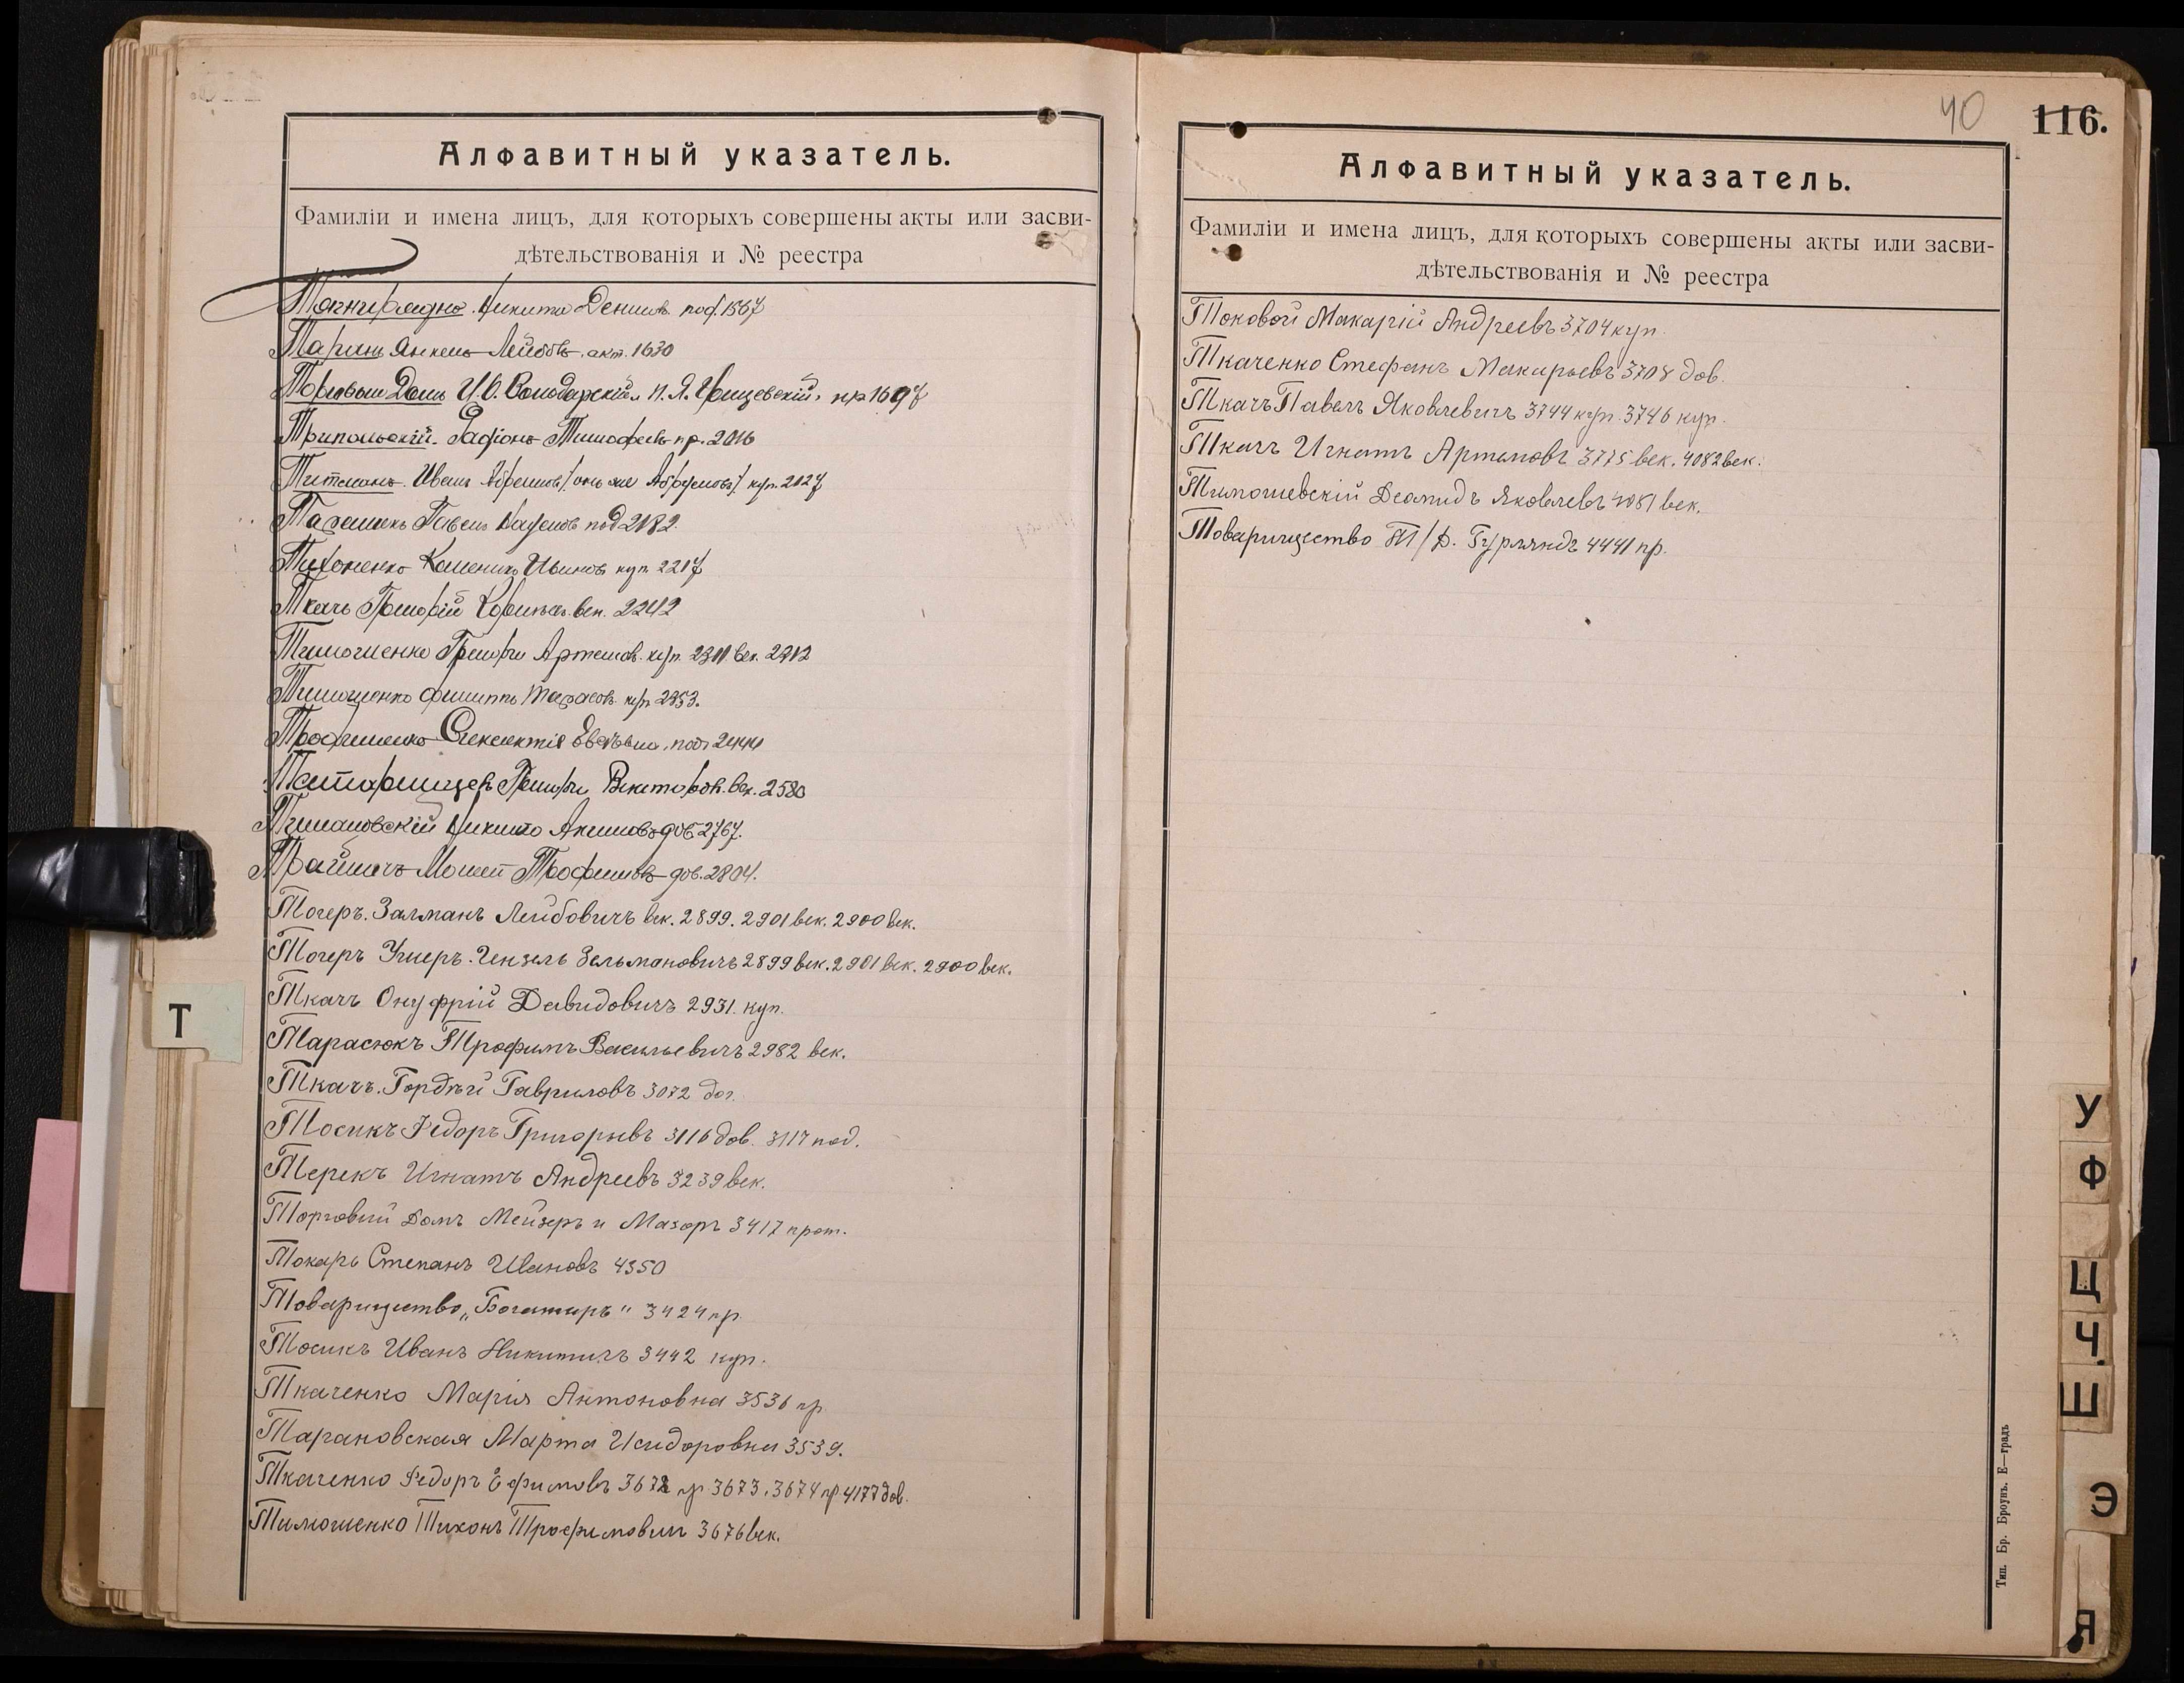 Алфавитный указатель.
Фамиліи и имена лицъ, для которыхъ совершены акты или засви-
дѣтельствованія и № реестра
Никита Денисов. под. 1567
Таринъ Янкель Лейбовъ. акт. 1630
Торговый Домъ И.О. Володарскій и Я. пр 1697
Трипольскій. Радіонъ Тимофеевъ пр. 2016
Титманъ. Абрамовъ / онъ же Абрумовъ / куп. 2127
Павелъ Наумовъ под 2182.
Тихоненко Ивановъ куп 2217
Ткачъ Григорій век. 2242
Тимошенко Григорій Артемов. куп. 2311 век. 2312
Тимошенко Филиппъ Тарасовъ куп 2353.
Трофименко 2444
Григорій Викторов. век. 2580
Тимановскій Никита Акимовъ дов 2767.
Моисей Трофимовъ дов. 2804.
Тогеръ. Залманъ Лейбовичъ век. 2899. 2901 век. 2900 век.
Тогеръ Ушеръ. Гензель Зельмановичъ 2899 век. 2901 век. 2900 век.
Ткачъ Онуфрій Давидовичъ 2931. куп.
Тарасюкъ Трофимъ Васильевичъ 2982 век.
Ткачъ. Гордѣй Гавриловъ 3072 дог.
Тосикъ Федоръ Григорьевъ 3116 дов. 3117 под.
Терекъ Игнатъ Андреевъ 3239 век.
Торговый Домъ Мейзеръ и Мазоръ 3417 прот.
Токарь Степанъ Ивановъ 4350
Товарищество „Богатыръ" 3424 пр.
Тосикъ Иванъ Никитичъ 3442 куп.
Ткаченко Марія Антоновна 3536 пр
Тарановская Марта Исидоровна 3539.
Ткаченко Федоръ Ефимовъ 3672 пр 3673. 3674 пр. 4177 дов.
Тимошенко Тихонъ Трофимович 3676 век.
Т
40
116.
Алфавитный указатель.
Фамиліи и имена лицъ, для которыхъ совершены акты или засви-
дѣтельствованія и № реестра
Токовой Макарій Андреевъ 3704 куп.
Ткаченко Стефанъ Макарьевъ 3708 дов.
Ткачъ Павелъ Яковлевичъ 3744 куп. 3746 куп.
Ткачъ Игнатъ Артемовъ 3775 век. 4082 век.
Тимошевскій Деомидъ Яковлевъ 4081 век.
Товарищество Т/Д. Гурляндъ 4441 пр.
У
Ф
Ц
Ч
Ш
Э
Я
Тип. Бр. Броунъ. Е—градъ